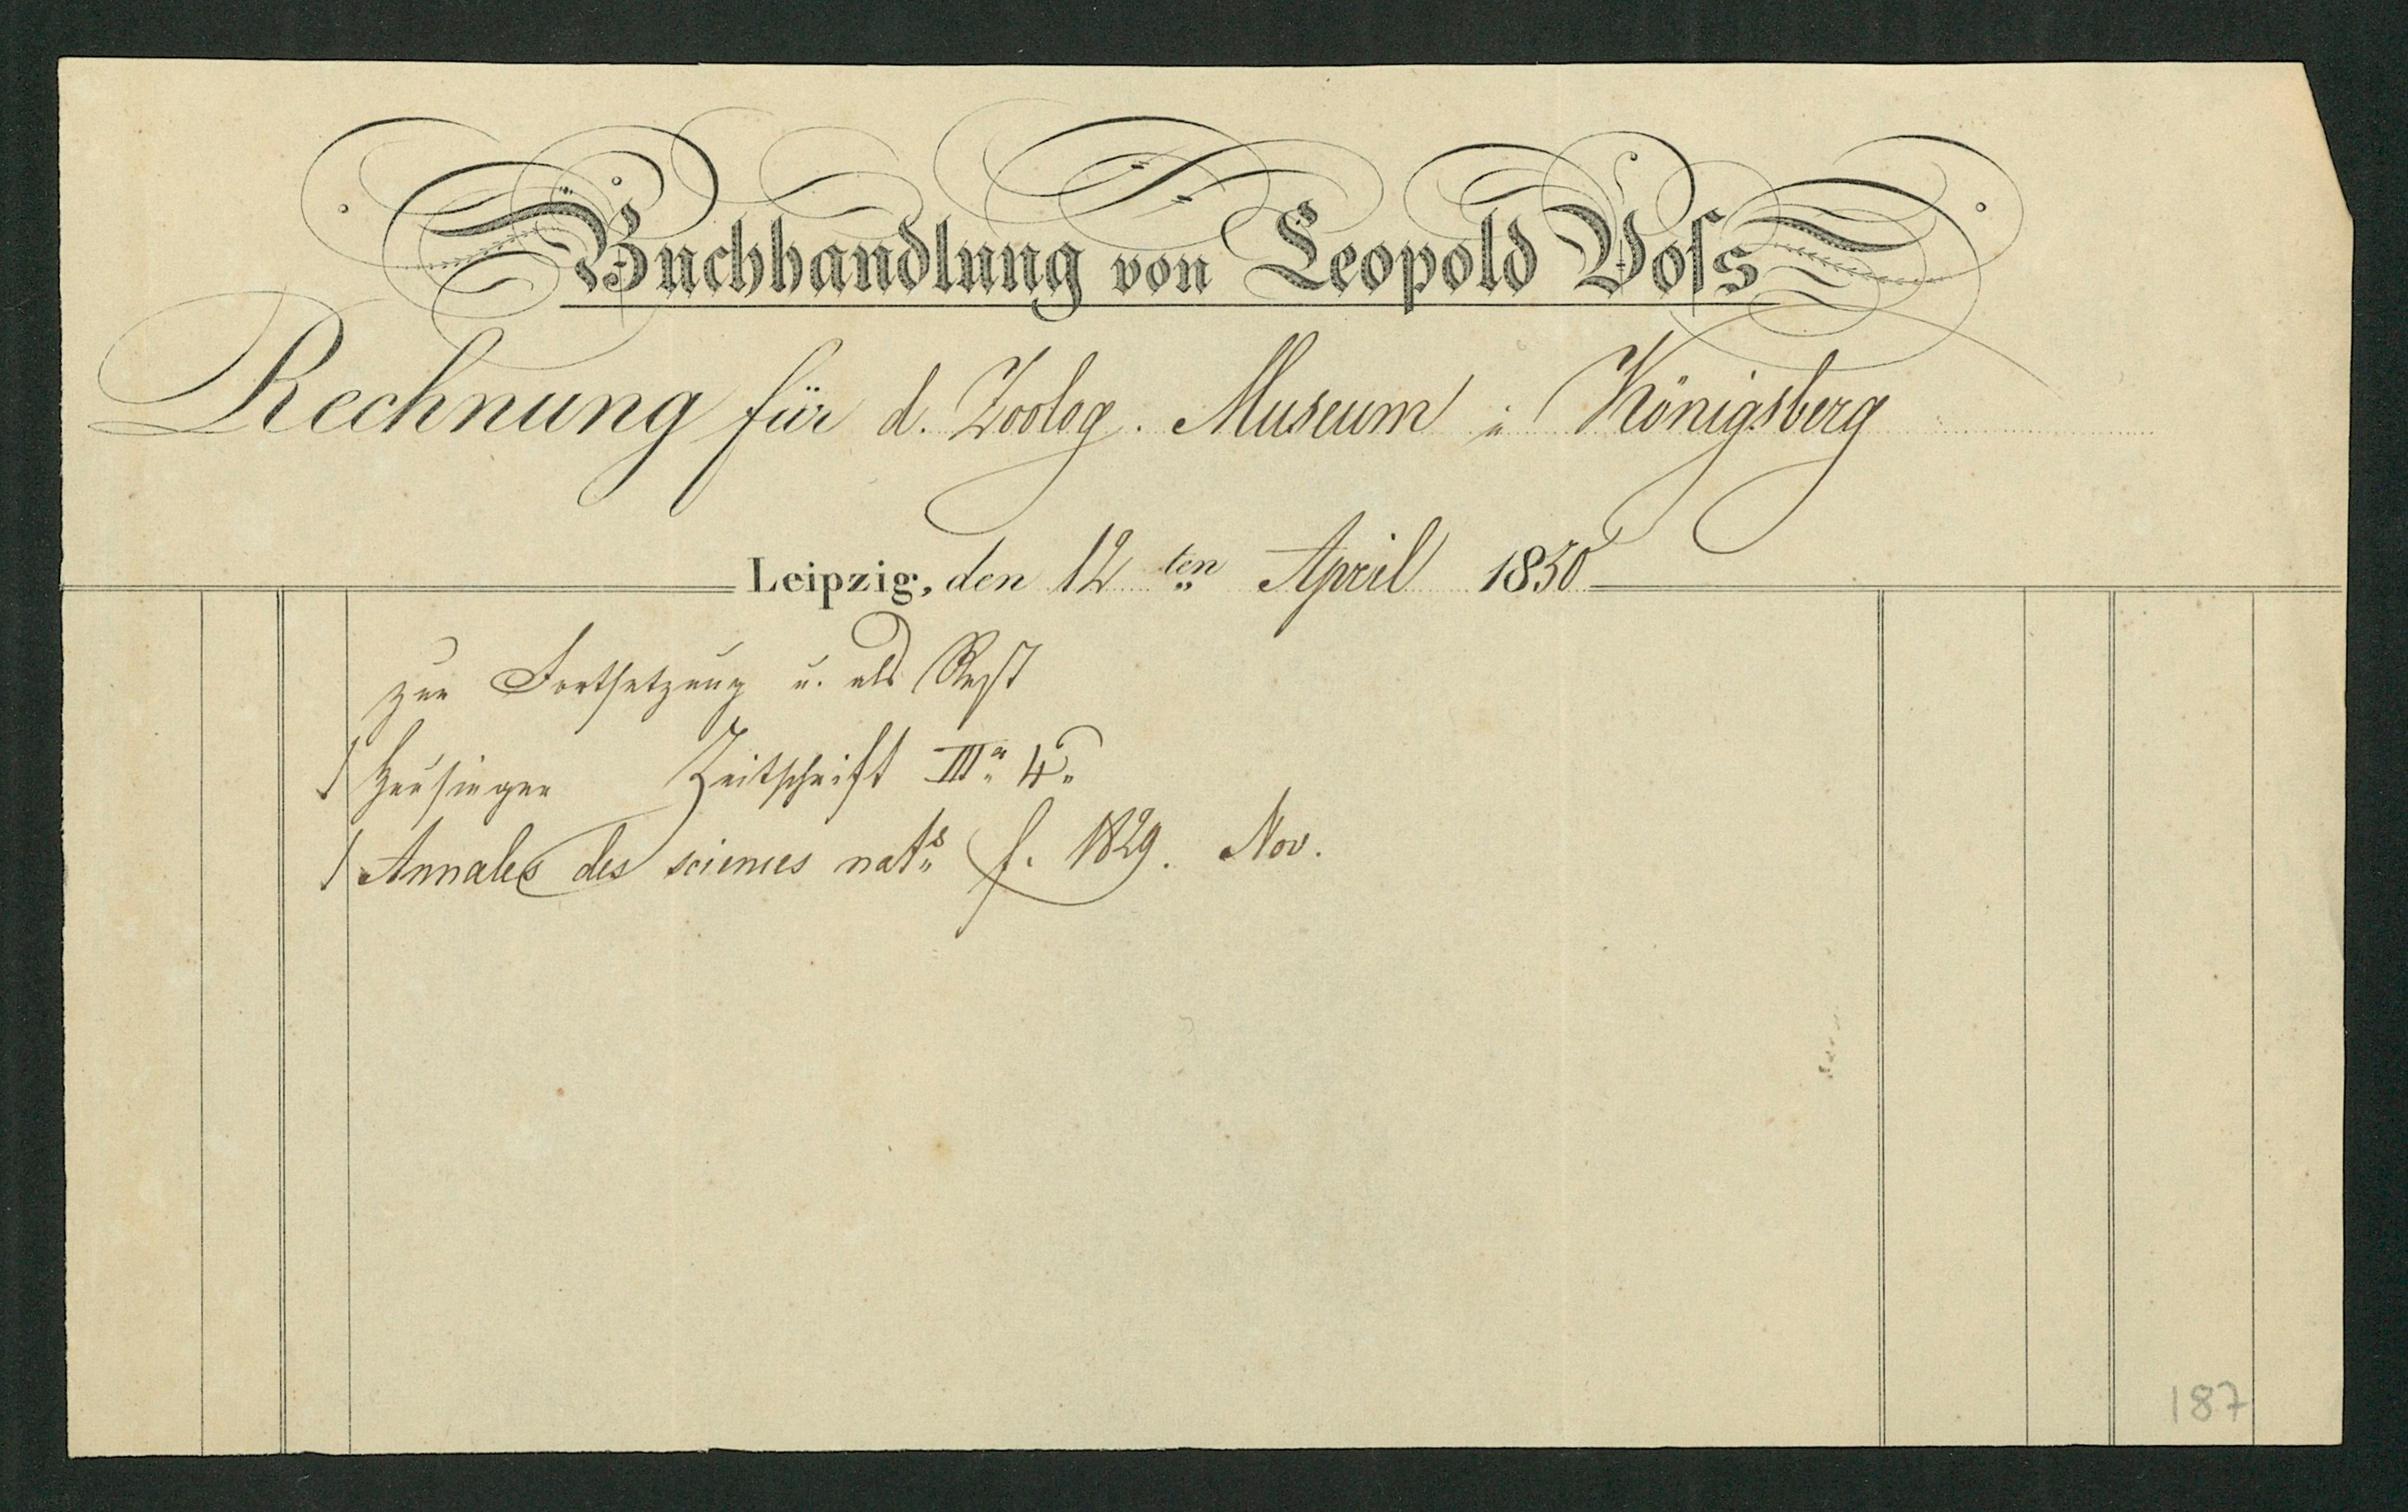 Buchhandlung von Leopold Voſs
Rechnung für d. Zoolog. Museum i Königsberg
Leipzig, den 12 ten April 1830
zur Fortsetzung u. als Rest
1 Heusinger Zeitschrift III. 4.
1 Annales des sciences nats f. 1829. Nov.
187